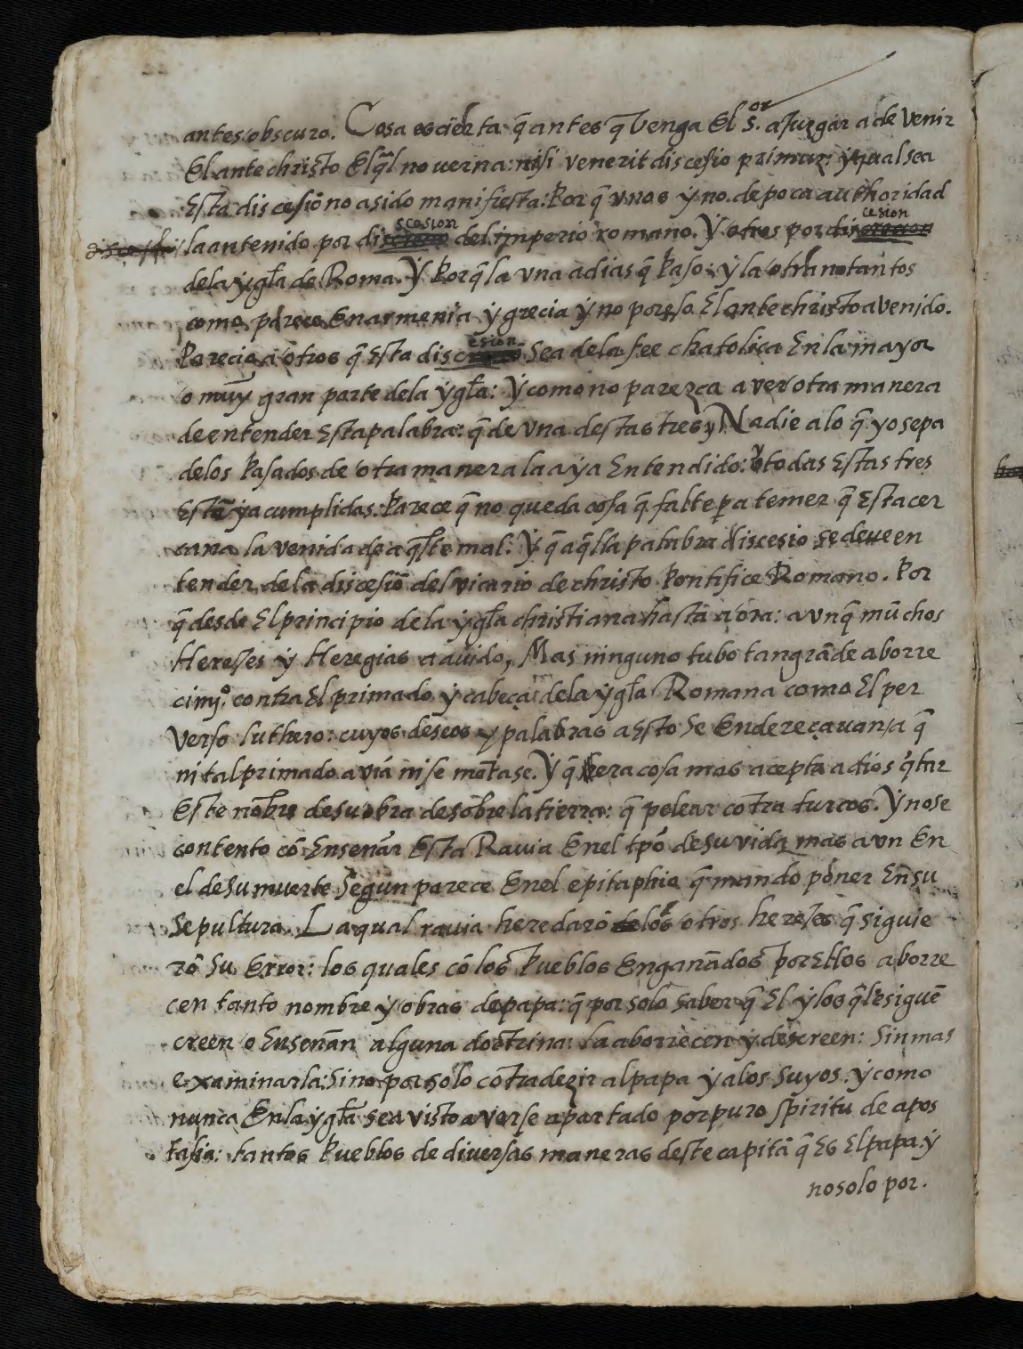 antes obscuro. Cosa es cierta q̄ antes q̄ venga El S.or a Juzgar a de venir
El ante christo El q̄l no verna: nisi venerit discesio primum: ÿ qual sea
Esta discesiō no a sido manifiesta: Por q̄ vnos ÿ no de poca authoridad
la an tenido por discesion del imperio romano. Ÿ otros por discesion
de la ÿgła de Roma. Ÿ Porq̄ la vna a dias q̄ Paso: ÿ la otra no tantos
como parece En armenia ÿ grecia ÿ no por Eso El ante christo a venido.
Parecia a otros q̄ Esta discesion Sea de la fee chatolica En la mayor
o muÿ gran parte de la ÿgła: Ÿ como no parezca aver otra manera
de entender Esta palabra: q̄ de vna destas tres ÿ Nadie a lo q̄ yo sepa
de los Pasados de otra manera la aÿa Entendido: ÿ todas Estas tres
Estē ÿa cumplidas: Parece q̄ no queda cosa q̄ falte pa temer q̄ Esta cer
cana la venida de aq̄ste mal. Ÿ q̄ aq̄lla palabra discesio se deve en
tender de la discesiō del vicario de christo Pontifice Romano. Por
q̄ desde El principio de la ÿgła christiana hasta aora: avnq̄ muchos
Hereges ÿ Heregias a avido, Mas ninguno tubo tan grāde aborre
cimj.o contra El primado ÿ cabeça de la ÿgła Romana como El per
verso luthero: cuyos deseos y palabras a Esto Se Endereçavan a q̄
ni tal primado aviā ni se mētase. Ÿ q̄ era cosa mas acepta a dios q̄tar
Este nōbre de su obra de sobre la tierra: q̄ pelear cōtra turcos. Ÿ no se
contento cō Enseñar Esta Ravia En el tpō de su vida mas avn En
el de su muerte Segun parece En el epitaphio q̄ mando poner En su
Sepultura. La qual ravia heredarō los otros hereges q̄ siguie
rō Su Error: los quales cō los Pueblos Engañados por Ellos aborre
cen tanto nombre ÿ obras de papa: q̄ por solo saber q̄ El ÿ los q̄ le siguē
creen o Enseñan alguna doctrina: la aborrecen ÿ descreen: Sin mas
examinarla: Sino por solo cōtradezir al papa ÿ a los suyos. ÿ como
nunca En la ÿgła se a visto averse apartado por puro spiritu de apos
tasia: tantos Pueblos de diversas maneras deste capitā q̄ Es El papa: ÿ
no solo por.